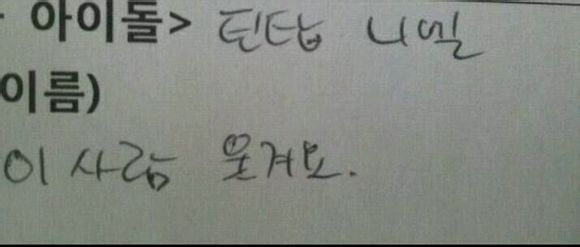 아이돌> 틴탑 니엘
이름)
이 사람 웃겨요.